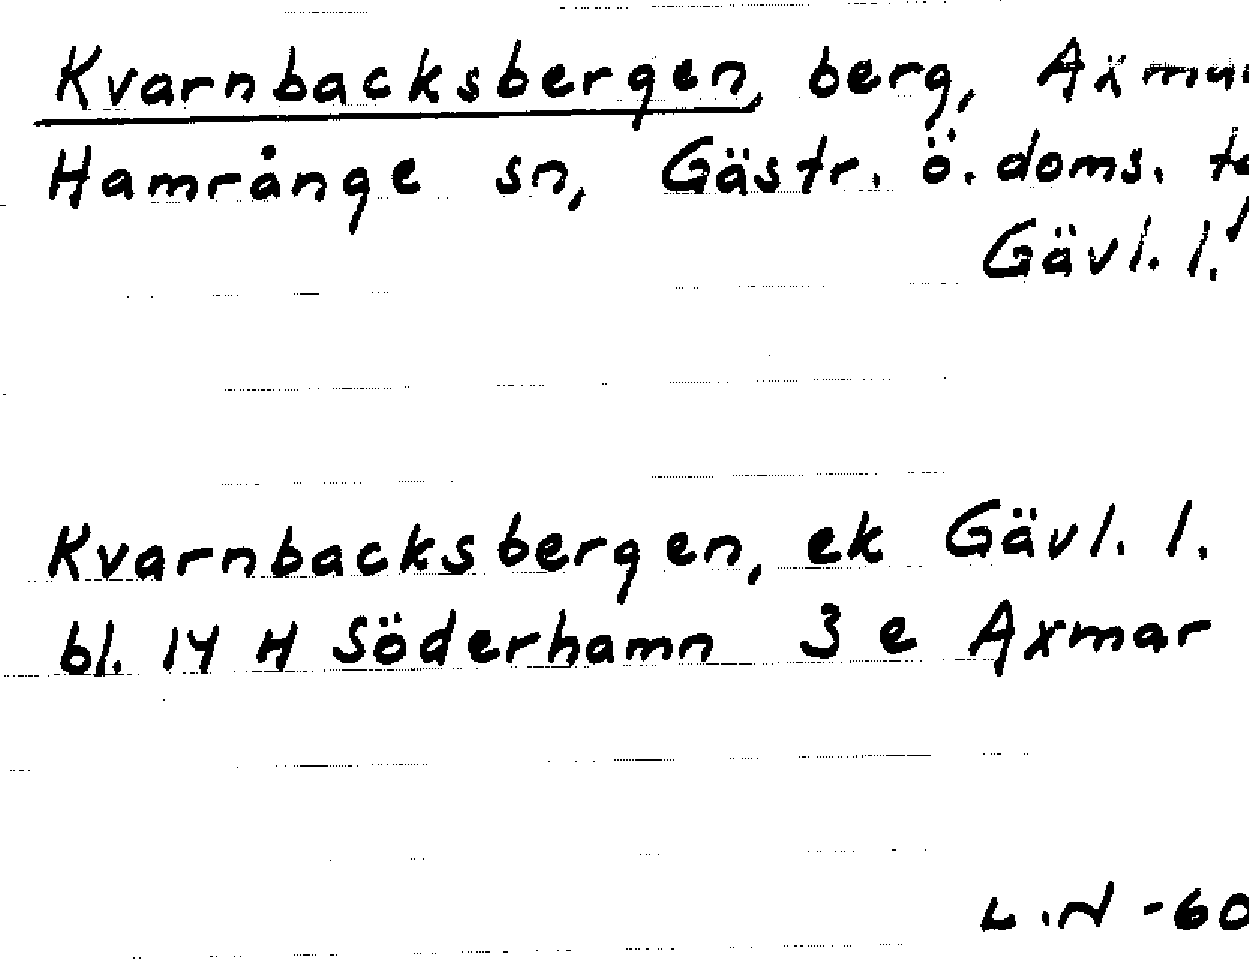 Kvarnbacksbergen, berg, Axmar
Hamrånge sn, Gästr. ö. doms.
Gävl. l.
Kvarnbacksbergen, ek Gävl. l.
bl. 14 H Söderhamn 3 e Axmar
L.N -60